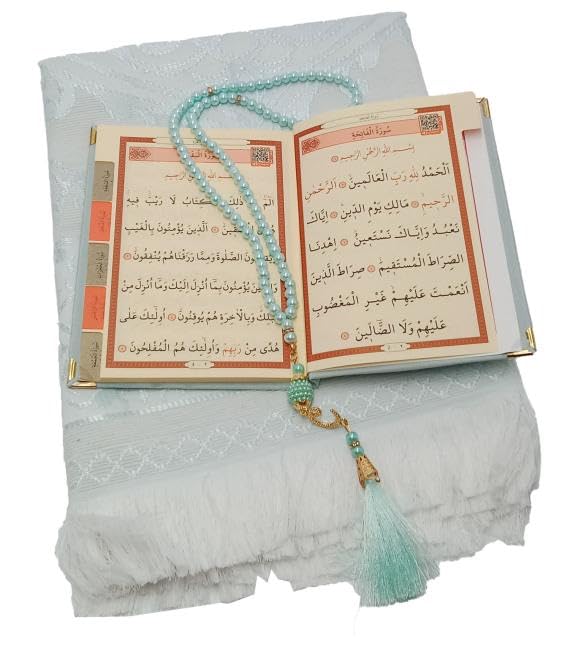 سُورَةُ الْفَاتِحَةِ
بِسْمِ اللهِ الرَّحْمٰنِ الرَّحِيمِ
اَلْحَمْدُ لِلهِ رَبِّ الْعَالَمِينَ الرَّحْمٰنِ
الرَّحِيمِ مَالِكِ يَوْمِ الدِّينِ اِيَّاكَ
نَعْبُدُ وَاِيَّاكَ نَسْتَعِينُ اِهْدِنَا
الصِّرَاطَ الْمُسْتَقِيمَ صِرَاطَ الَّذِينَ
اَنْعَمْتَ عَلَيْهِمْ غَيْرِ الْمَغْضُوبِ
عَلَيْهِمْ وَلَا الضَّالِّينَ
سُورَةُ
اللهِ الرَّحْمٰنِ الرَّحِيمِ
الٓمٓ ذٰلِكَ الْكِتَابُ لَا رَيْبَ فِيهِ
هُدًى اَلَّذِينَ يُؤْمِنُونَ بِالْغَيْبِ
وَيُقِيمُونَ الصَّلٰوةَ وَمِمَّا رَزَقْنَاهُمْ يُنْفِقُونَ
وَالَّذِينَ يُؤْمِنُونَ بِمَا اُنْزِلَ اِلَيْكَ وَمَا اُنْزِلَ مِنْ
قَبْلِكَ وَبِالْاٰخِرَةِ هُمْ يُوقِنُونَ اُولٰئِكَ عَلٰى
هُدًى مِنْ رَبِّهِمْ وَاُولٰئِكَ هُمُ الْمُفْلِحُونَ